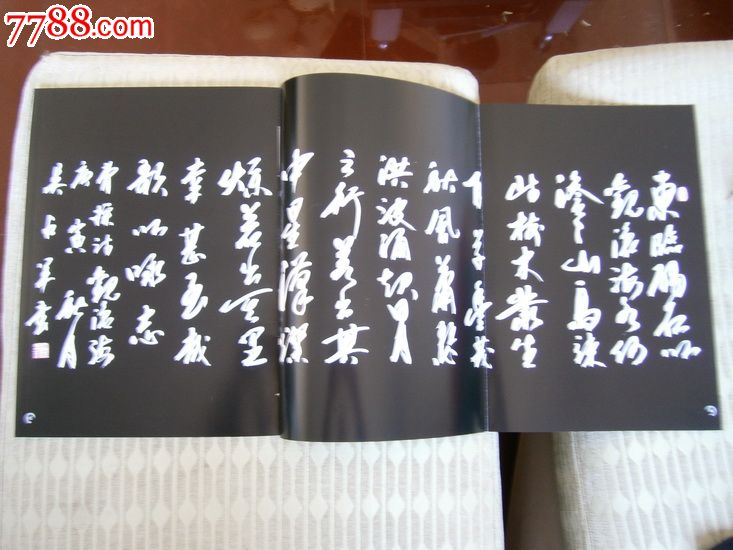 7788.com
中国收藏热线
東臨碣石以
觀滄海水何
澹々山島竦
峙樹木叢生
百草豐茂
秋風蕭瑟
洪波涌起日月
之行若出其
中星漢燦
爛若出其里
幸甚至哉
歌以咏志
曹操詩觀滄海
庚寅秋月